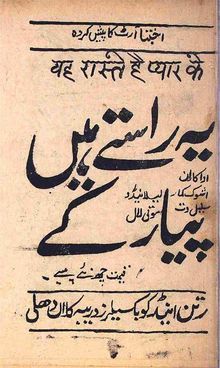 اجنتا آرٹ کا پیش کردہ
यह रास्ते हैं प्यार के
یہ راستے ہیں
پیار کے
اداکار
اشوک کمار
سنیل دت
لیلا نیڈو
موتی لال
قیمت چھ نئے پیسے
رتن اینڈ کو بک سیلرز دریبہ کلاں دھلی